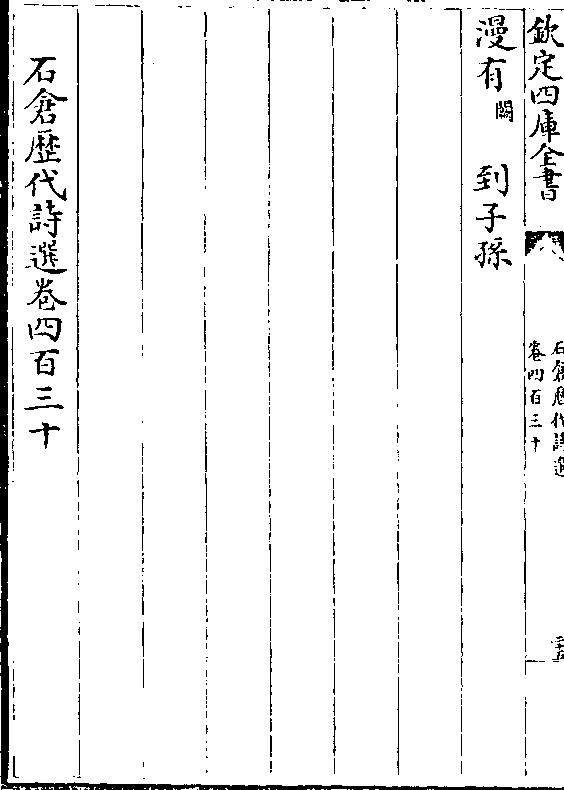 欽定四庫全書
石倉歷代詩選
卷四百三十
二十五
漫有闕到子孫
石倉歷代詩選卷四百三十